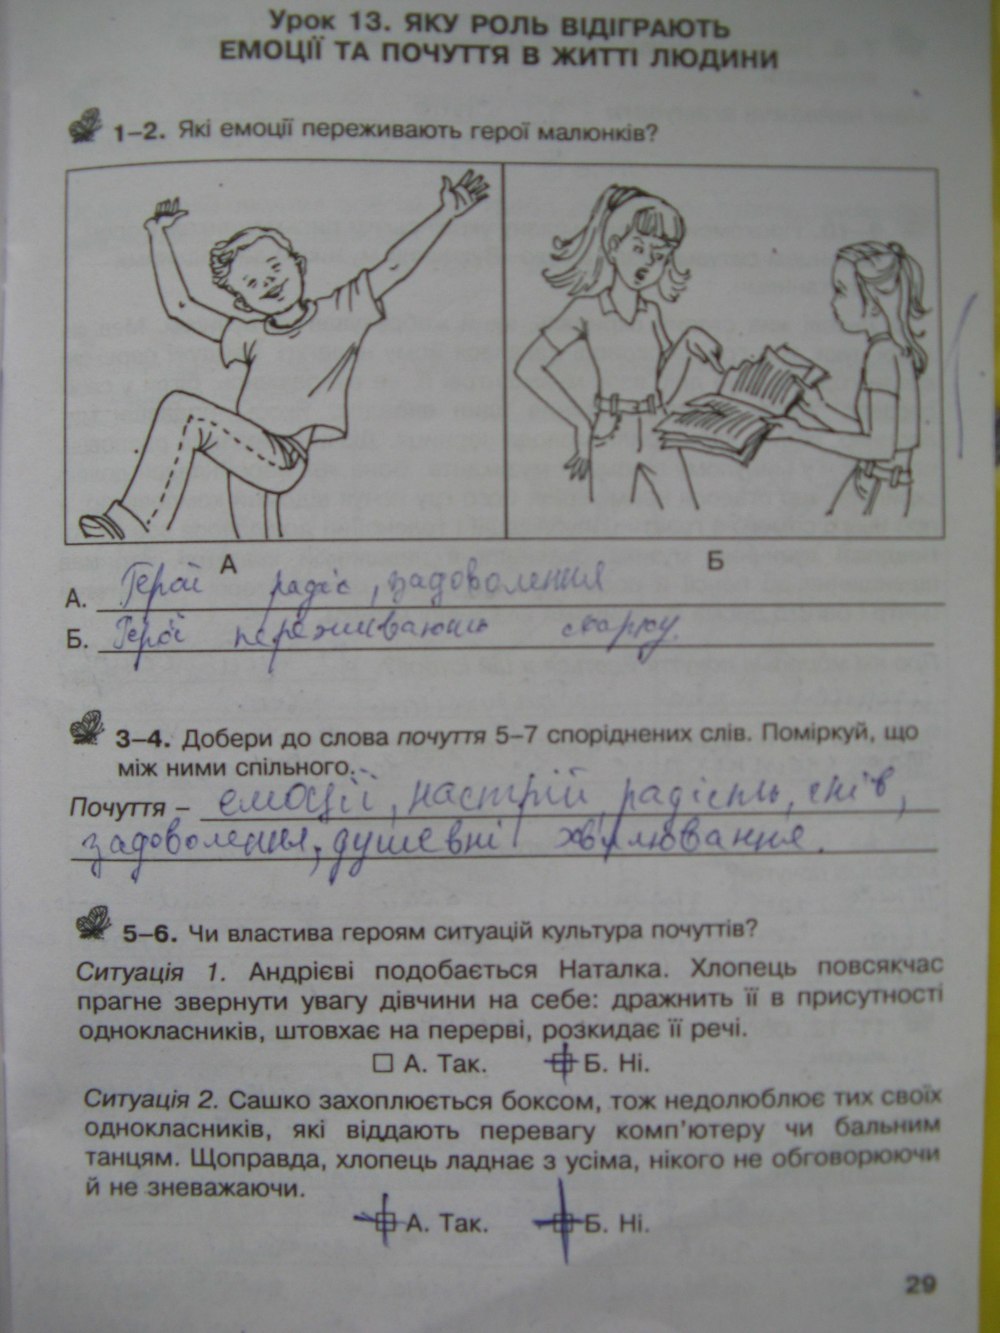 Урок 13. ЯКУ РОЛЬ ВІДІГРАЮТЬ
ЕМОЦІЇ ТА ПОЧУТТЯ В ЖИТТІ ЛЮДИНИ
1–2. Які емоції переживають герої малюнків?
А
Б
А. Герої радіс, задоволення
Б. Герої переживають сварку.
3–4. Добери до слова почуття 5–7 споріднених слів. Поміркуй, що
між ними спільного.
Почуття – емоції, настрій, радість, гнів,
задоволення, душевні хвилювання.
5–6. Чи властива героям ситуацій культура почуттів?
Ситуація 1. Андрієві подобається Наталка. Хлопець повсякчас
прагне звернути увагу дівчини на себе: дражнить її в присутності
однокласників, штовхає на перерві, розкидає її речі.
А. Так. Б. Ні.
Ситуація 2. Сашко захоплюється боксом, тож недолюблює тих своїх
однокласників, які віддають перевагу комп'ютеру чи бальним
танцям. Щоправда, хлопець ладнає з усіма, нікого не обговорюючи
й не зневажаючи.
А. Так. Б. Ні.
29